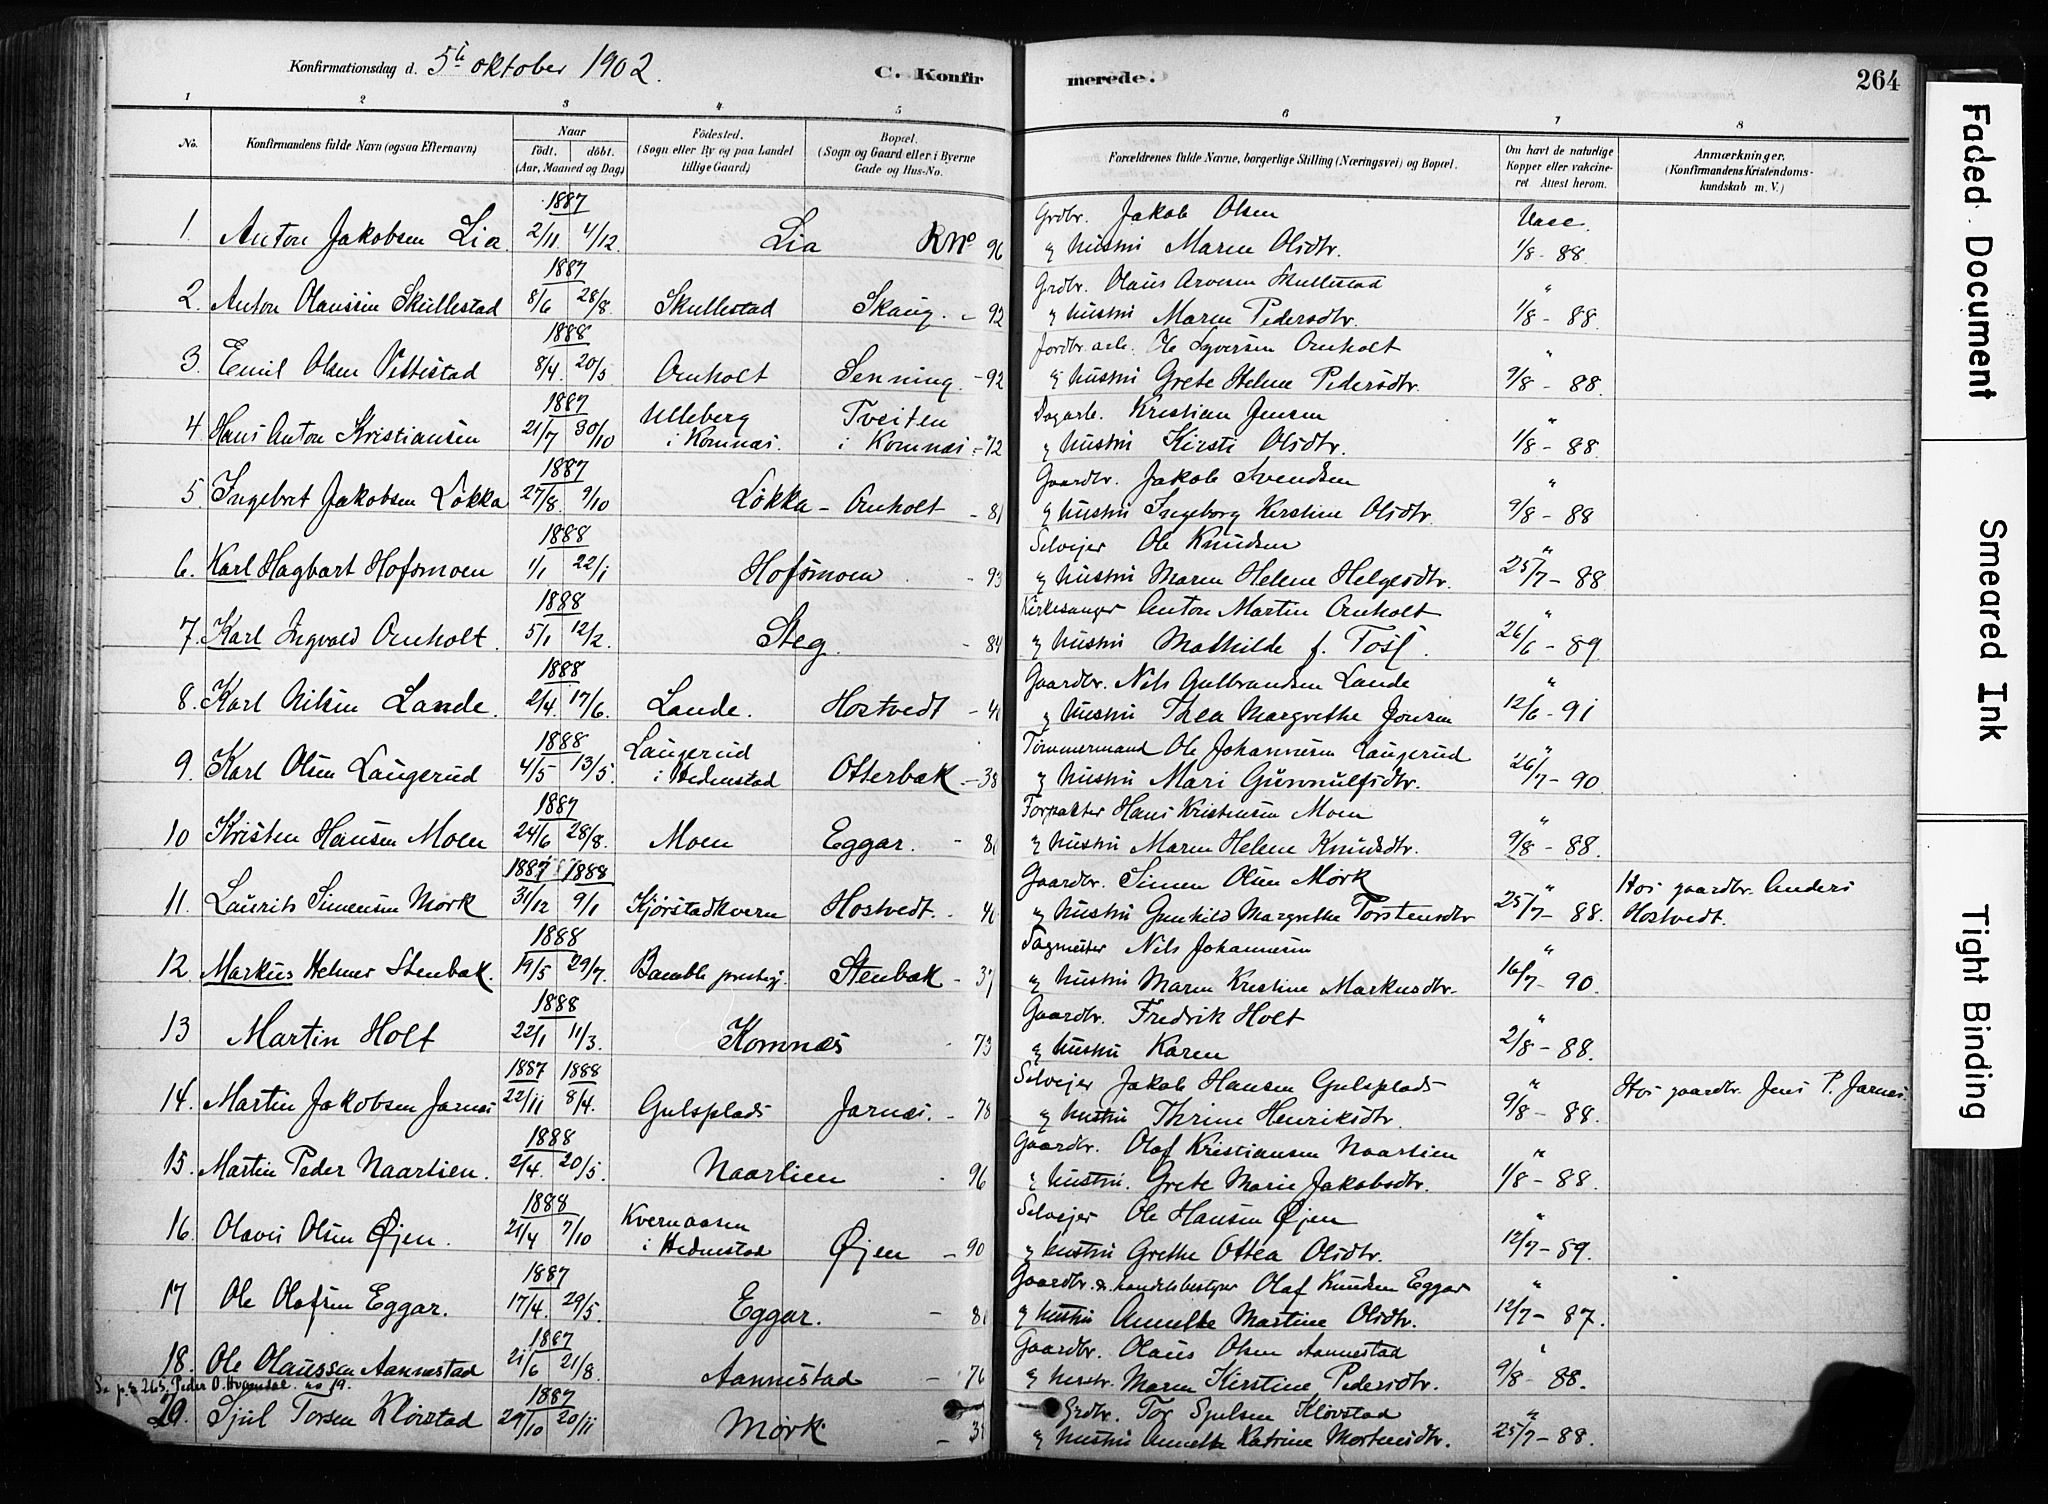 Konfirmationsdag d. 5te oktober 1902.
C. Konfir merede.
264
1 2 3 4 5 6 7 8
No.
Konfirmandens fulde Navn (ogsaa Efternavn)
Naar
født. døbt.
(Aar, Maaned og Dag)
Fødested.
(Sogn eller By og paa Landet
tillige Gaard)
Bopæl.
(Sogn og Gaard eller i Byerne
Gade og Hus-No.
Forældrenes fulde Navne, borgerlige Stilling (Næringsvei) og Bopæl.
Om havt de naturlige
Kopper eller vakcine-
ret Attest herom.
Anmærkninger.
(Konfirmandens Kristendoms-
kundskab m. V.)
1887 Grdbr. Jakob Olsen Vacc.
1. Anton Jakobsen Lia 2/11 4/12. Lia RNo 96 og hustru Maren Olsdtr. 1/8 - 88.
1887 Grdbr. Olaus Arvesen Skullestad "
2. Anton Olaussen Skullestad 8/6 28/8. Skullestad Skaug. - 92 og hustru Maren Pedersdtr. 1/8 - 88.
1888 Jordbr. arb. Ole Syversen Arnholt "
3. Emil Olsen Vettestad 8/4. 20/5 Arnholt Senning. - 92 og hustru Grete Helene Pedersdtr. 9/8 - 88.
1887 Ulleberg Tveiten Dagarb. Kristian Jensen "
4 Hans Anton Kristiansen 21/7 30/10 i Komnæs. i Komnæs. - 72 og hustru Kirsti Olsdtr. 1/8 - 88.
1887 Gaardbr. Jakob Svendsen "
5. Ingebret Jakobsen Løkka 27/8. 9/10 Løkka - Arnholt - 81 og hustru Ingeborg Kirstine Olsdtr. 9/8 - 88
1888 Selvejer Ole Knudsen "
6. Karl Hagbart Hofsmoen 1/1 22/1 Hofsmoen - 93 og hustru Maren Helene Helgesdtr. 25/7 - 88
1888 Kirkesanger Anton Martin Arnholt "
7. Karl Ingvald Arnholt. 5/1 12/2. Steg. - 84 og hustru Mathilde f. 26/6 - 89
1888 Gaardbr. Nils Gulbrandsen Lande "
8. Karl Nilsen Lande. 2/4. 17/6. Lande. Hostvedt - 40 og hustru Thea Margrethe Jonsen 12/6 - 91
1888 Laugerud Tømmermand Ole Johannesen Laugerud "
9. Karl Olsen Laugerud 4/5 13/5. i Hedenstad Otterbæk - 38 og hustru Mari Gunnulfsdtr. 26/7 - 90
1887 Forpakter Hans Kristensen Moen "
10 Kristen Hansen Moen 24/6 28/8. Moen Eggar. - 81 og hustru Maren Helene Knudsdtr. 9/8 - 88.
1887 1888 Gaardbr. Simen Olsen Mørk " Hos gaardbr. Anders
11. Laurits Simensen Mørk 31/12 9/1 Kjørstadkvern Hostvedt. - 40 og hustru Gunhild Margrethe Torstensdtr 25/7 - 88. Hostvedt.
1888 Sagmester Nils Johannesen "
12. Markus Helmer Stenbæk. 19/5 29/7. Bamble prestegj. Stenbæk - 37 og hustru Maren Kristine Markusdtr. 16/7 - 90.
1888 Gaardbr. Fredrik Holt "
13 Martin Holt 22/1 11/3. Komnæs - 73 og hustru Karen 2/8 - 88.
1887 1888 Selvejer Jakob Hansen Gulsplads " Hos gaardbr. Jens P. Jarnæs.
14. Martin Jakobsen Jarnæs 22/11 8/4. Gulsplads Jarnæs. - 78 og hustru Thrine Henriksdtr. 9/8 - 88.
1888 Gaardbr. Olaf Kristiansen Naarlien "
15. Martin Peder Naarlien. 2/4. 20/5 Naarlien - 96 og hustru. Grete Marie Jakobsdtr. 1/8 - 88.
1888 Kvernaasen Selvejer Ole Hansen Øjen "
16. Olavus Olsen Øjen. 21/4 7/10 i Hedenstad Øjen - 90 og hustru Grethe Ottea Olsdtr. 12/7 - 89.
1887 Gaardbr. & handelsbestyrer Olaf Knudsen Eggar "
17 Ole Olafsen Eggar. 17/4. 29/5. Eggar. - 81 og hustru Annette Martine Olsdtr. 12/7 - 87.
1887 Gaardbr. Olaus Olsen Aannestad "
18. Ole Olaussen Aannestad 21/6 21/8. Aannestad - 76 og hustr. Maren Kirstine Pedersdtr. 9/8 - 88.
Se p. 265. Peder O. Hvamdal no 19.
1887 Grdbr. Tor Sjulsen Kløvstad "
20. Sjul Torsen Kløvstad 29/10 20/11 Mørk - 39 og hustru Annette Katrine Mortensdtr. 25/7 - 88.
Faded Document
Smeared Ink
Tight Binding